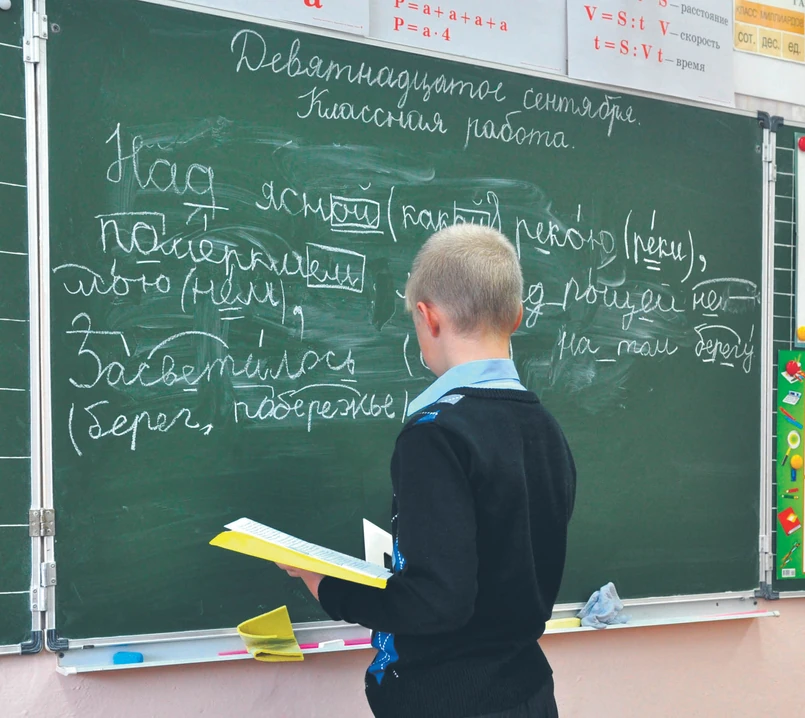 а
P = a + a + a + a
P = a · 4
S — расстояние
V = S : t V — скорость
t = S : V t — время
КЛАСС МИЛЛИАРДОВ
сот. дес. ед.
Девятнадцатое сентября.
Классная работа.
Над ясной (какой) реко́ю (ре́ки),
по́мерклием
мо́ю (нем), ро́щей не
Засвети́лось ( на_том берегу́
(берег, побережье)